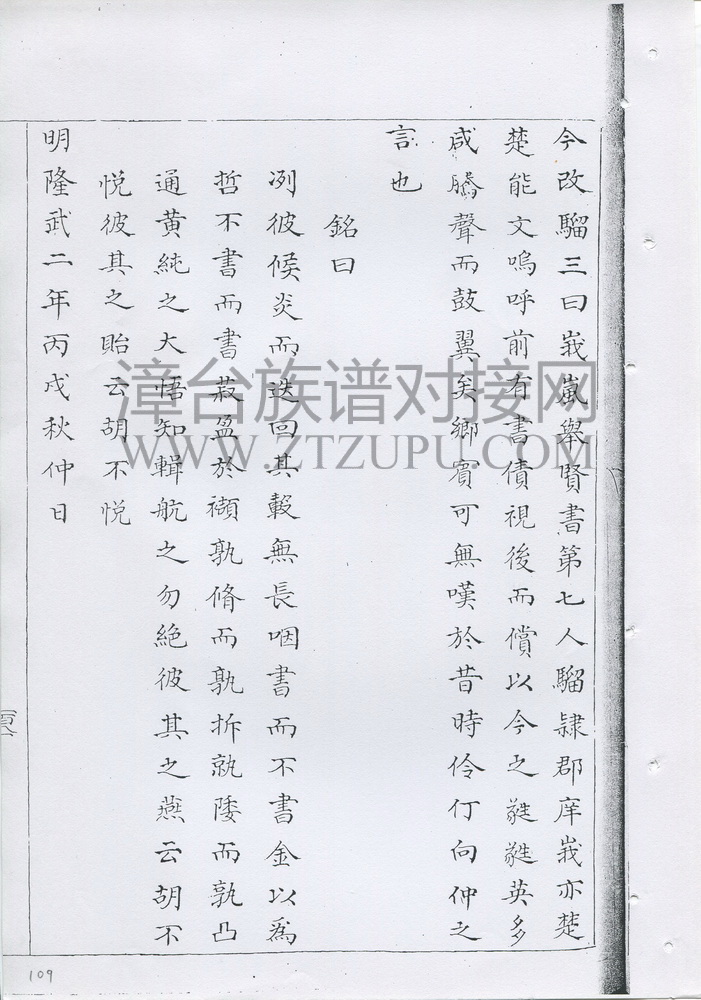 今改騮三曰峩嵐舉賢書第七人騮隷郡庠峩亦楚
楚能文嗚呼前有書債視後而償以今之蕤蕤英多
咸騰聲而鼓翼矣鄉賓可無嘆於昔時伶仃向仲之
言也
銘曰
冽彼候炎而迭回其轂無長咽書而不書金以為
哲不書而書菽盈於襭孰脩而孰拆孰倭而孰凸
通黃純之大悟知輯航之勿絕彼其之燕云胡不
悅彼其之貽云胡不悅
明隆武二年丙戌秋仲日
漳台族谱对接网
WWW.ZTZUPU.COM
109